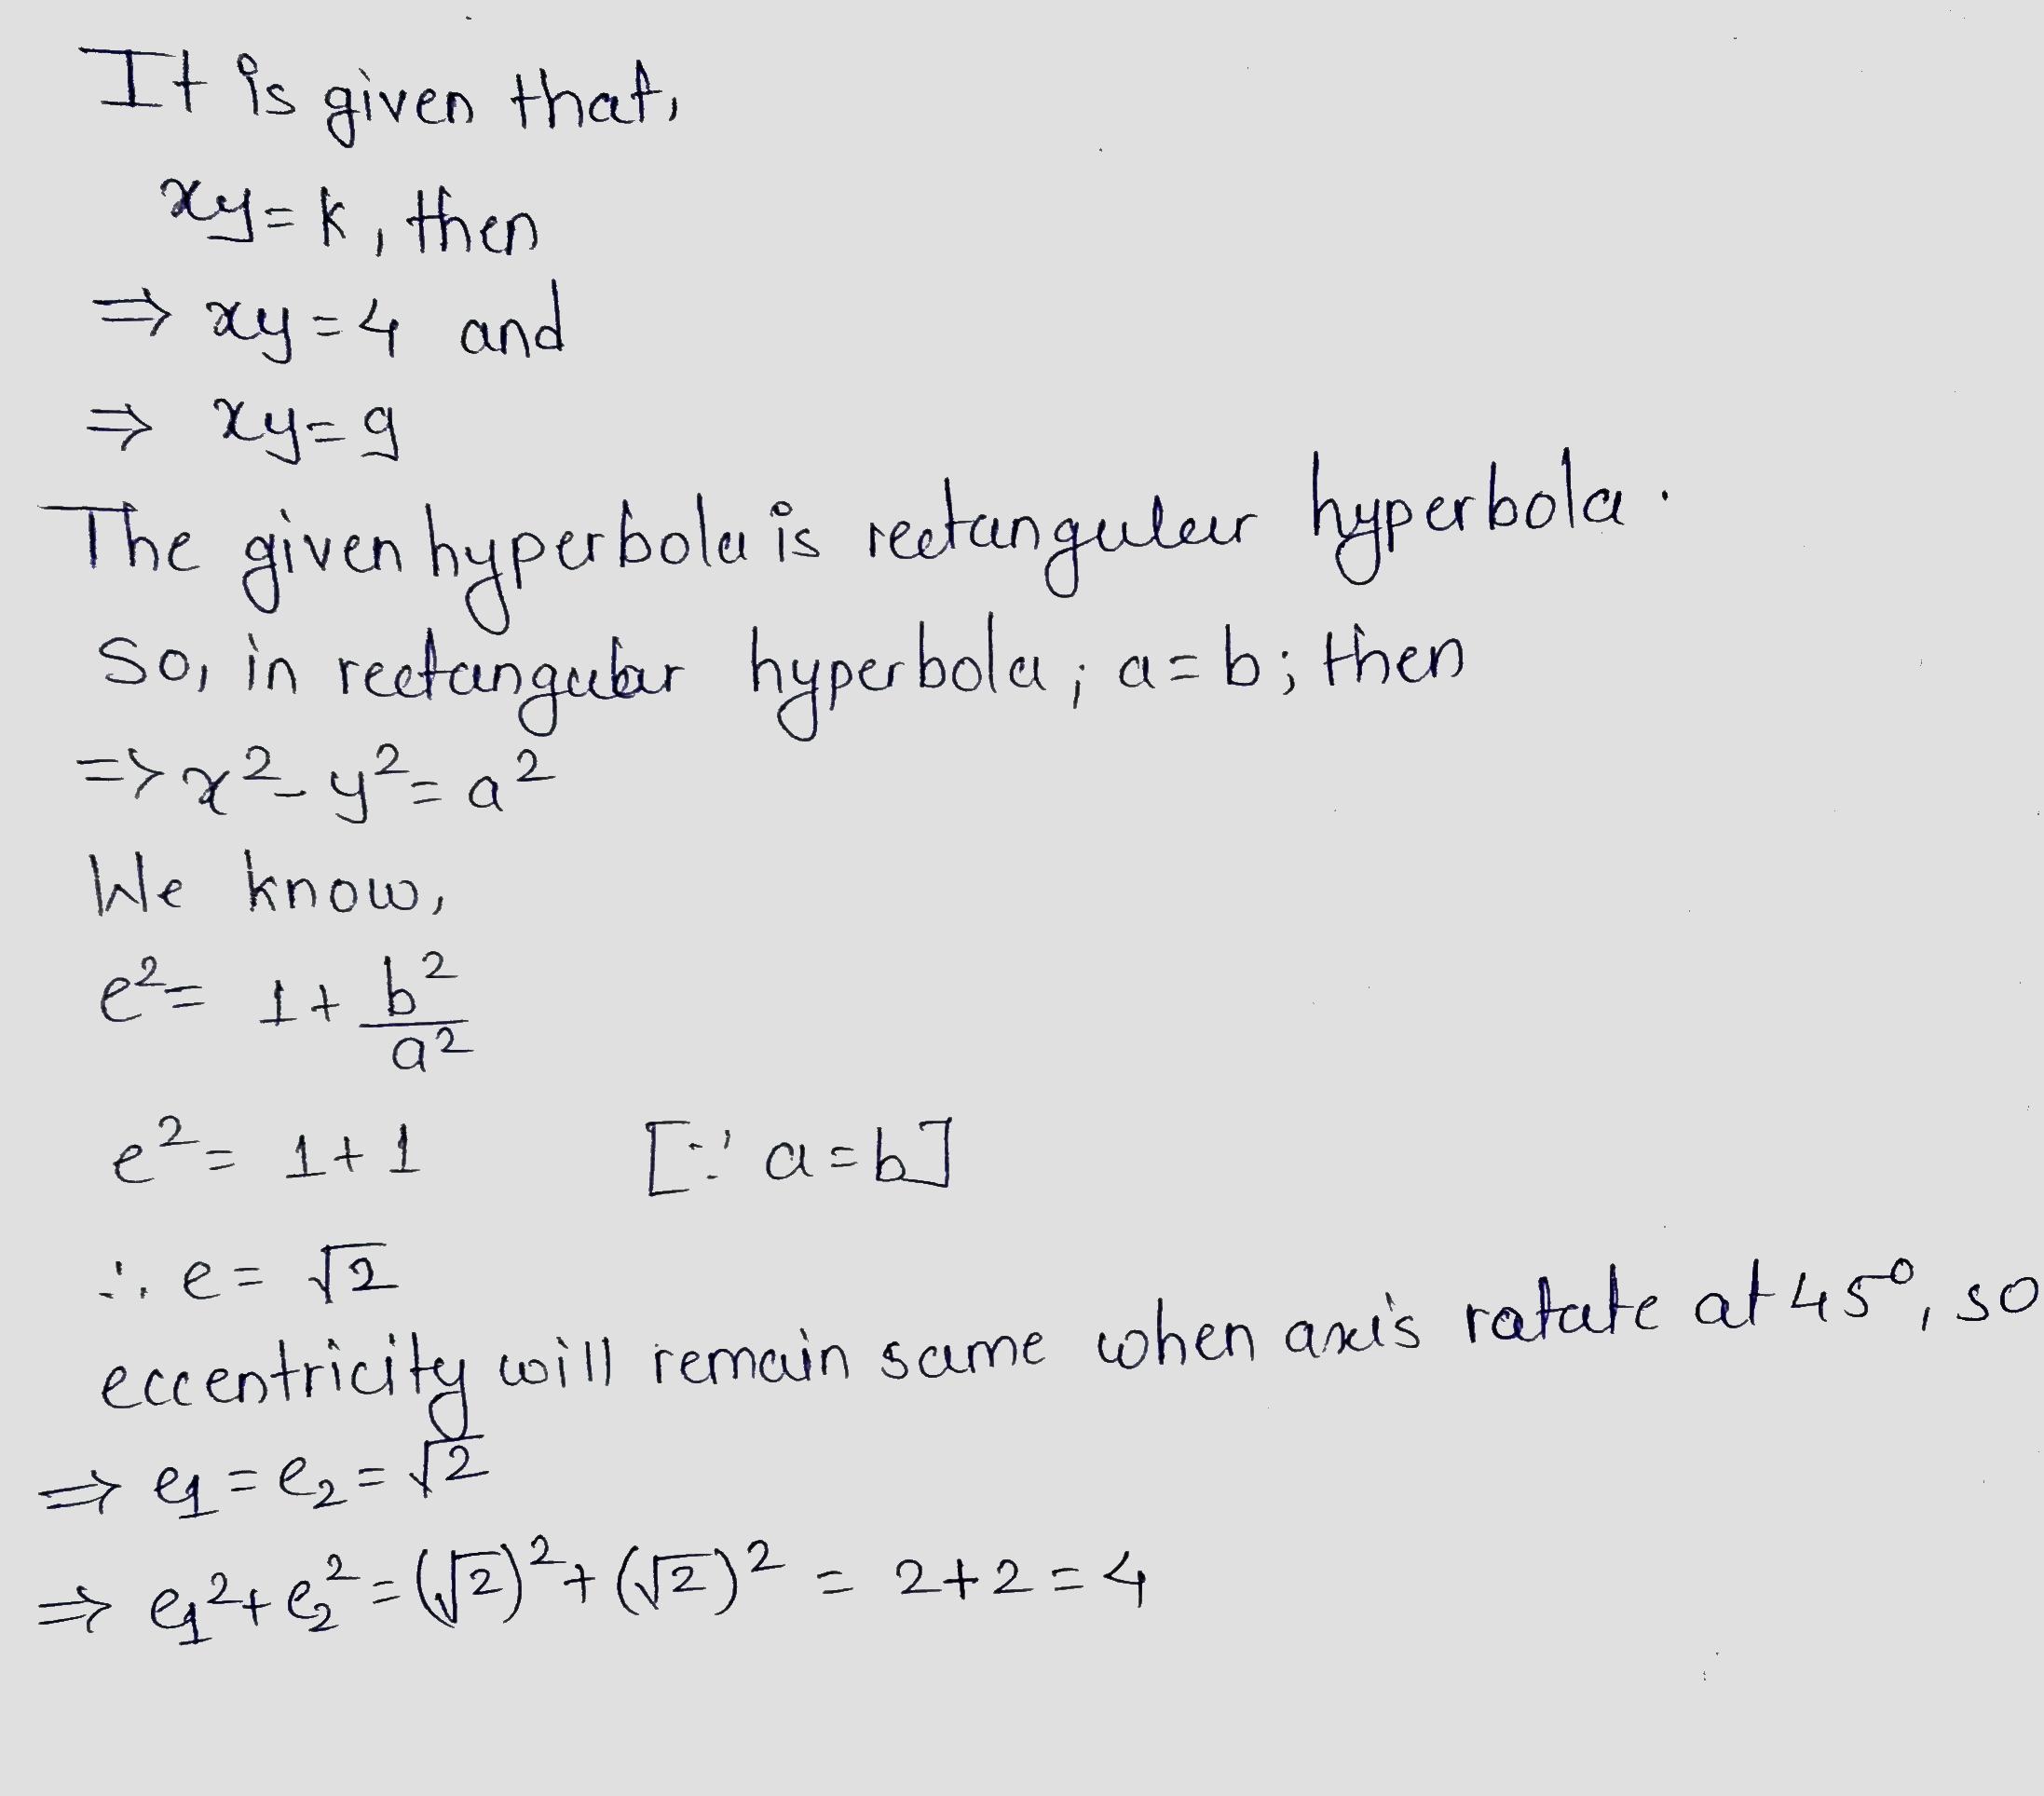 It is given that,
xy=k, then
⇒ xy=4 and
⇒ xy=9
The given hyperbola is rectangular hyperbola.
So, in rectangular hyperbola; a=b; then
=> x²-y²=a²
We know,
e²= 1+ b²/a²
e²= 1+1 [∵ a=b]
∴ e= √2
eccentricity will remain same when axis ratate at 45°, so
⇒ e₁=e₂=√2
⇒ e₁²+e₂²=(√2)²+(√2)² = 2+2=4